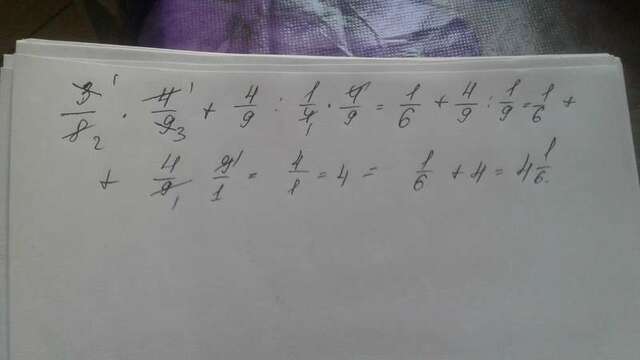 3/8 ¹ ₂ · 4/9 ¹ ₃ + 4/9 : 1/4 ₁ · 4/9 = 1/6 + 4/9 : 1/9 = 1/6 +
+ 4/9 ₁ 9/1 ¹ = 4/1 = 4 = 1/6 + 4 = 4 1/6.